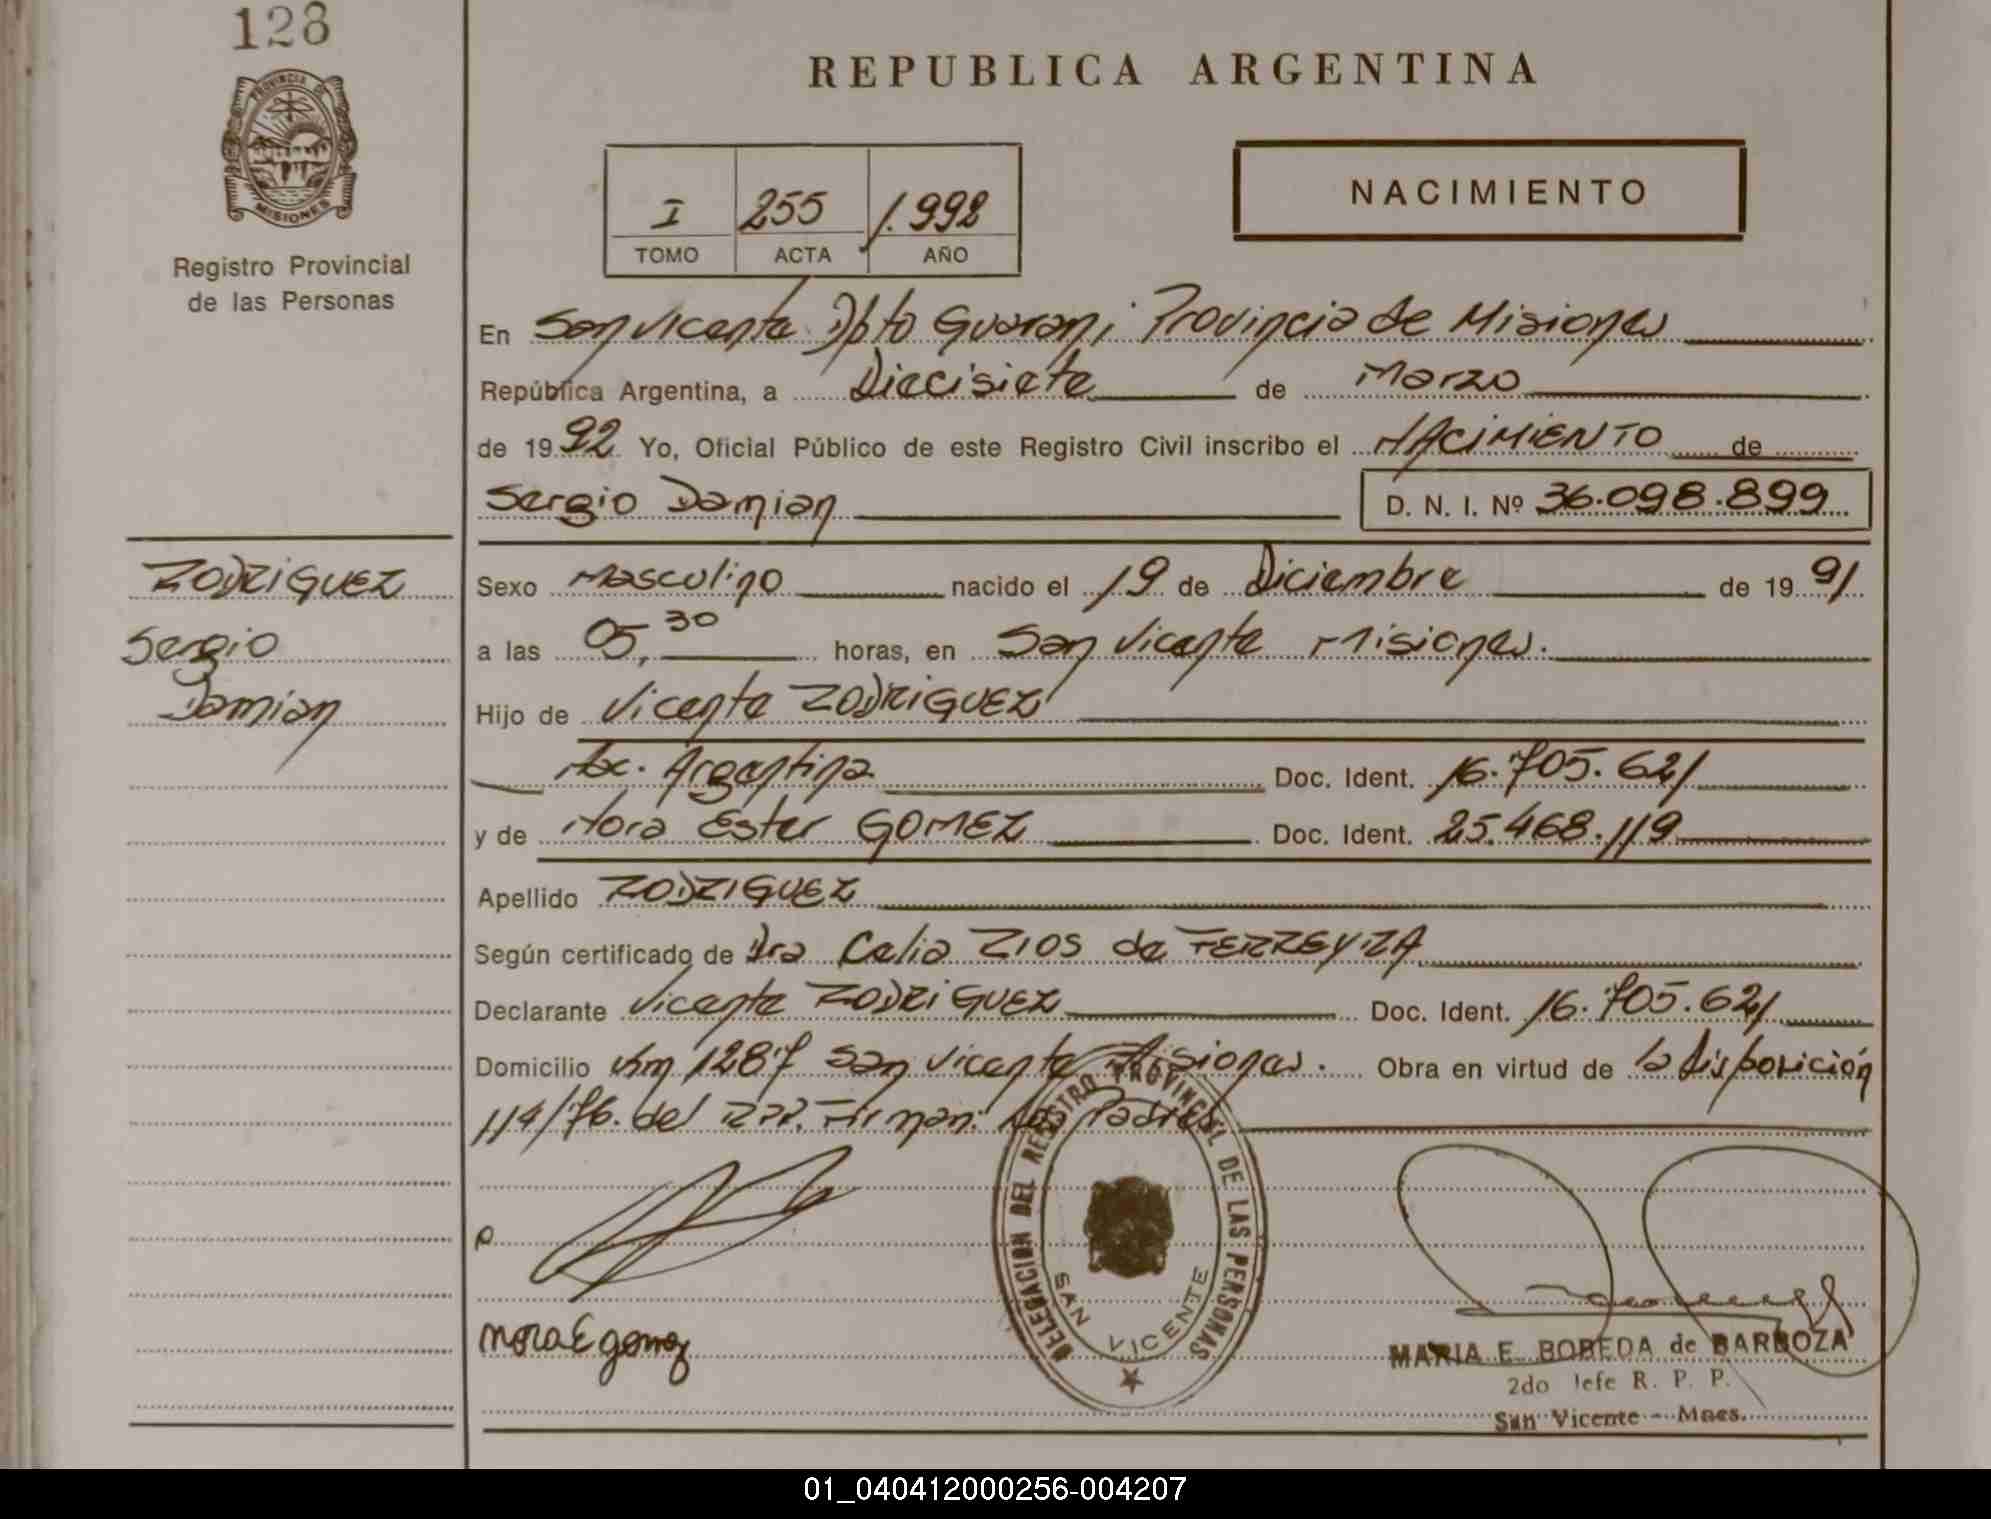 128
PROVINCIA DE
MISIONES
Registro Provincial
de las Personas
RODRIGUEZ
Sergio
Damian
REPUBLICA ARGENTINA
I 255 1.992
TOMO ACTA AÑO
NACIMIENTO
En San Vicente Dpto Guarani Provincia de Misiones
República Argentina, a Diecisiete de Marzo
de 1992 Yo, Oficial Público de este Registro Civil inscribo el NACIMIENTO de
Sergio Damian D. N. I. Nº 36.098.899
Sexo Masculino nacido el 19 de Diciembre de 1991
a las 05,30 horas, en San Vicente Misiones.
Hijo de Vicente RODRIGUEZ
Nac. Argentina Doc. Ident. 16.705.621
y de Nora Ester GOMEZ Doc. Ident. 25.468.119
Apellido RODRIGUEZ
Según certificado de Dra Celia RIOS de FERREYRA
Declarante Vicente RODRIGUEZ Doc. Ident. 16.705.621
Domicilio Km 1287 San Vicente Misiones. Obra en virtud de la Disposición
114/76. del R.P.P. Firman: Los Padres
DELEGACION DEL REGISTRO PROVINCIAL DE LAS PERSONAS
SAN VICENTE
Nora E gomez
MARIA E. BOBEDA de BARBOZA
2do Jefe R. P. P.
San Vicente - Mnes.
01_040412000256-004207